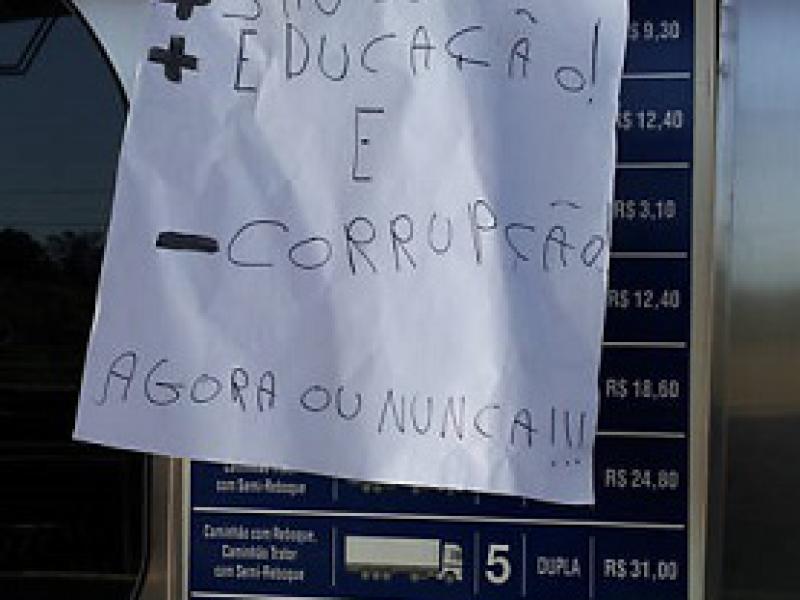 + EDUCAÇÃO!
E
- CORRUPÇÃO
AGORA OU NUNCA!!!
R$ 9,30
R$ 12,40
R$ 3,10
R$ 12,40
R$ 18,60
com Semi-Reboque
R$ 24,80
Caminhão com Reboque,
Caminhão Trator
com Semi-Reboque
5
DUPLA
R$ 31,00